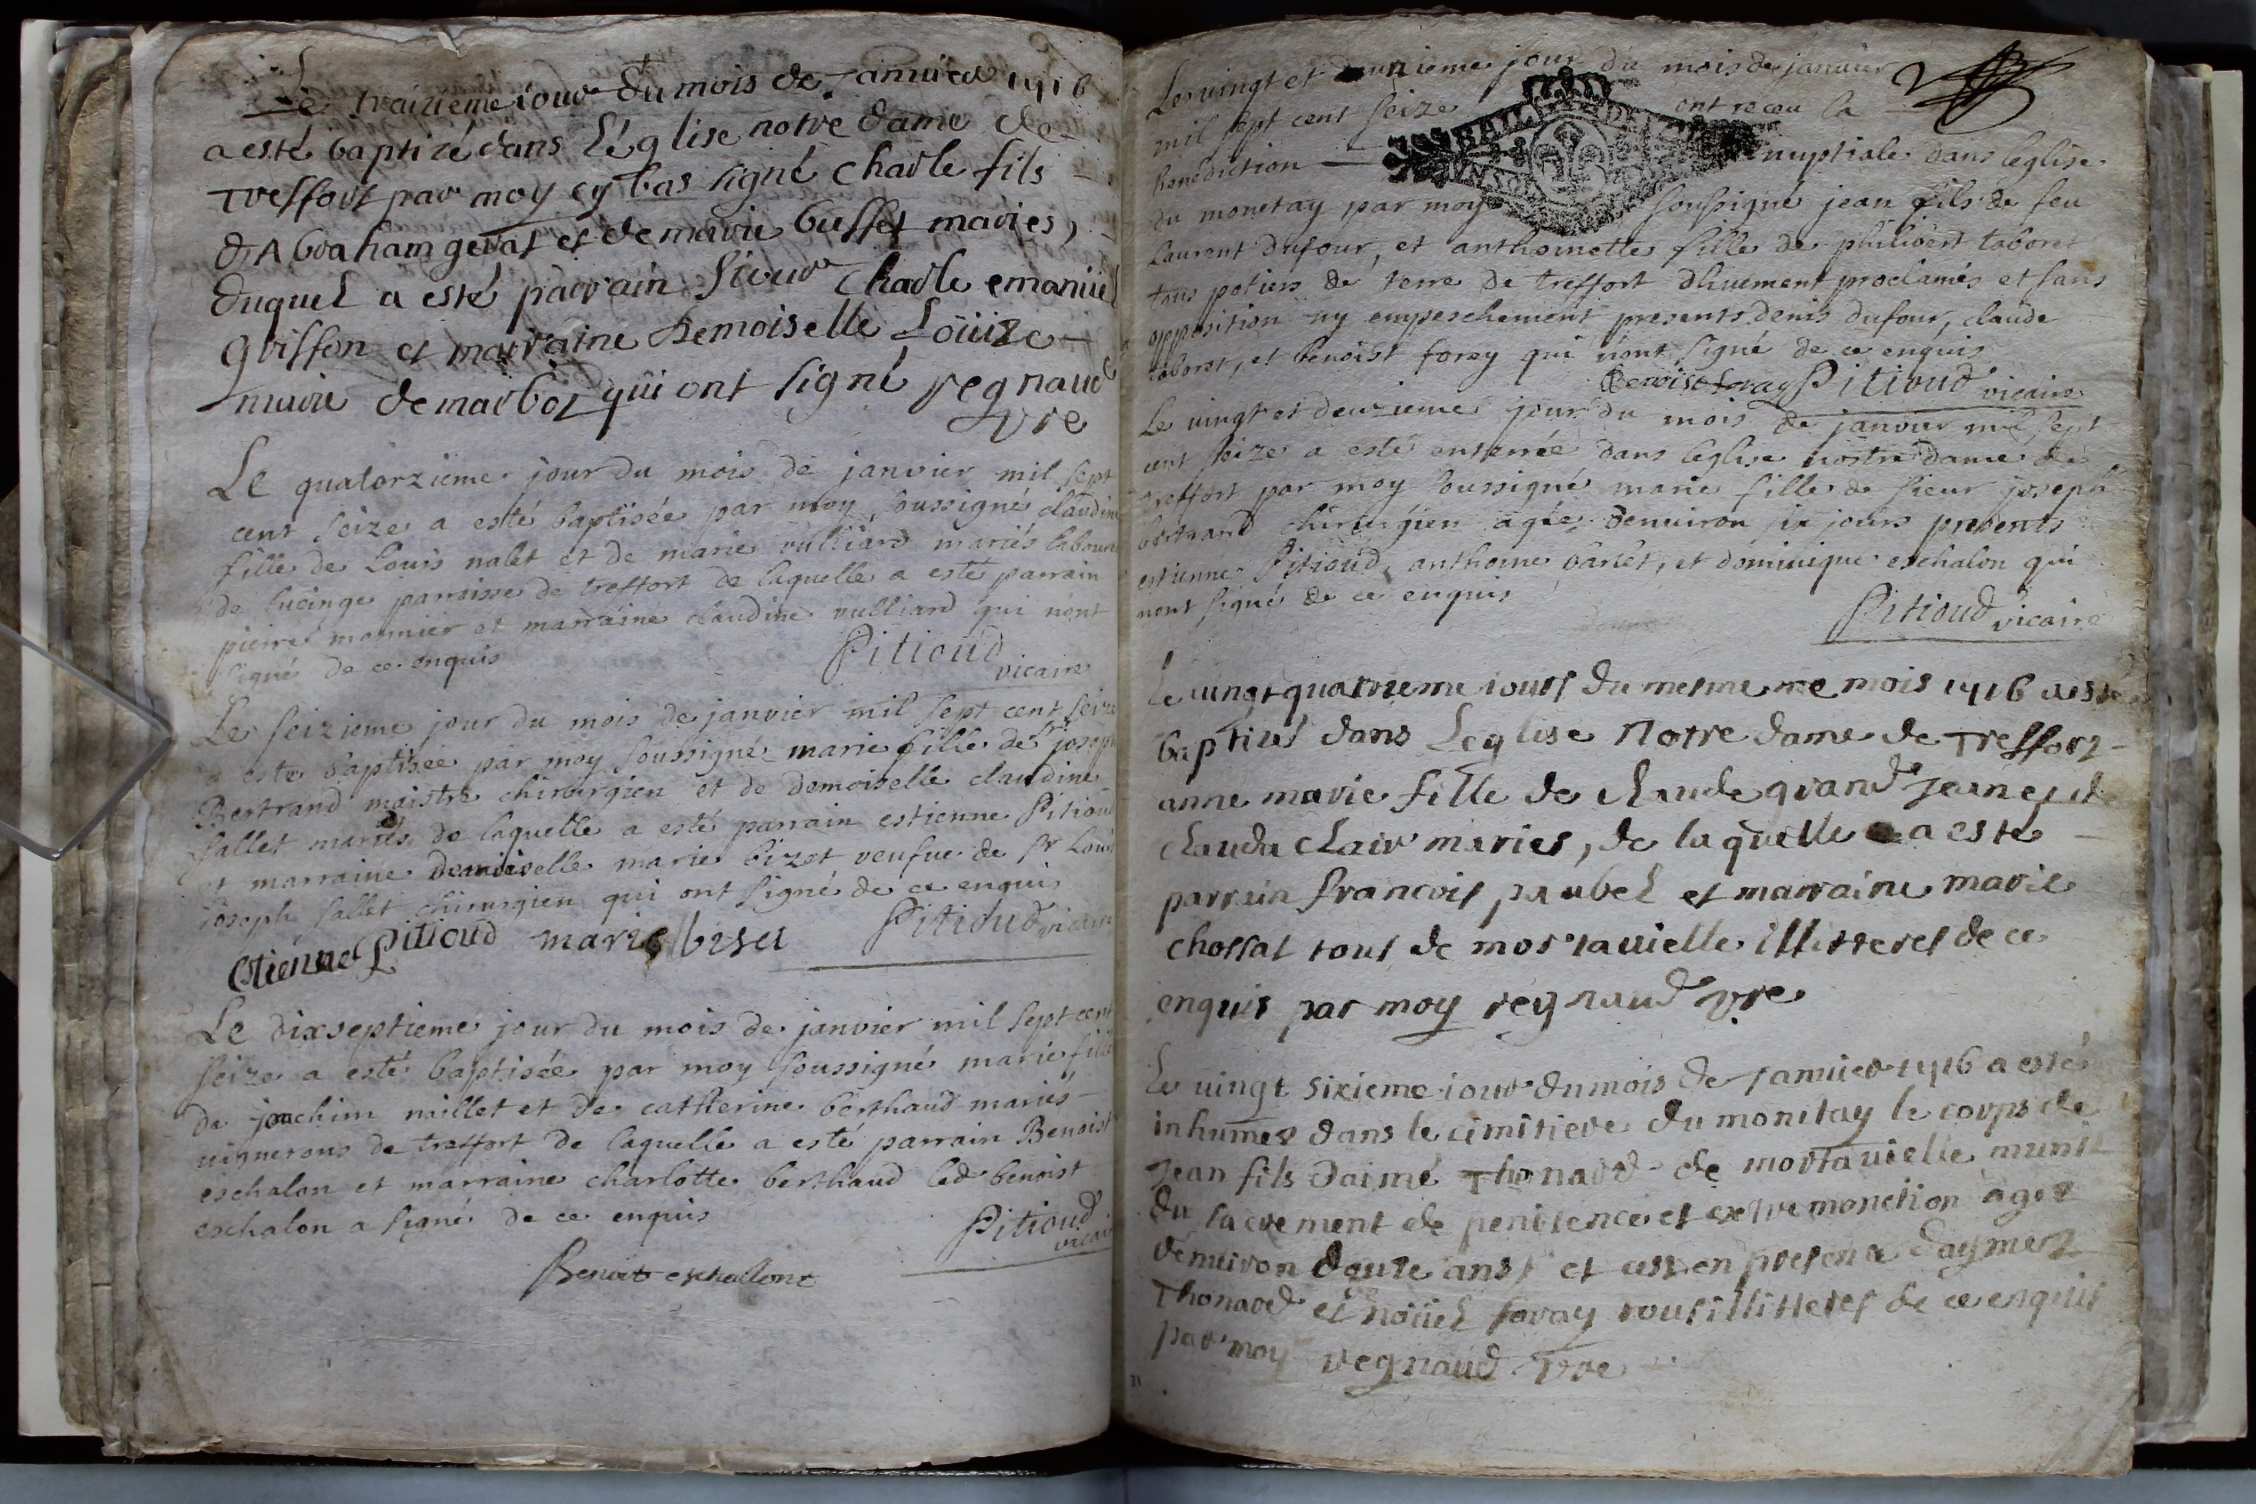 Le traizieme iour du mois de januier 1716
a esté baptizé dans L'église notre dame de
Treffort par moy cy bas signé charle fils
d'Abraham gevat et de marie buffet maries,
duquel a esté parrain sieur charle emanuel
griffon et marraine demoiselle Loüize
marie de marboz qui ont signé regnaud
vre
Le quatorzieme jour du mois de janvier mil sept
cent seize a esté baptisée par moy soussigné claudine
fille de Louis nalet et de marie vulliard mariés laboure
de lucinge parroisse de treffort de laquelle a esté parrain
pierre monnier et marraine claudine vulliard qui n'ont
signé de ce enquis
Pitioud vicaire
Le seizieme jour du mois de janvier mil sept cent seize
a esté baptisée par moy soussigné marie fille de sr joseph
Bertrand maistre chirurgien et de demoiselle claudine
sallet mariés de laquelle a esté parrain estienne Pitioud
et marraine Demoiselle marie bizet veufue de sr Louis
Joseph sallet chirurgien qui ont signé de ce enquis
Estienne Pitioud marie biset Pitioud vicaire
Le dixseptieme jour du mois de janvier mil sept cent
seize a esté baptisée par moy soussigné marie fille
de joachim naillet et de catherine berthaud mariés
vignerons de treffort de laquelle a esté parrain Benoist
eschalon et marraine charlotte berthaud led benoist
eschalon a signé de ce enquis
Pitioud vicaire
Benoit eschallont
Le vingt et unieme jour du mois de janvier
mil sept cent seize ont receu la
benediction nuptiale dans leglise
du monetay par moy soussigné jean fils de feu
Laurent dufour, et anthoinette fille de philibert taboret
tous potiers de terre de treffort dhuement proclamés et sans
opposition ny empeschement presents denis dufour, claude
taboret, et benoist foray qui n'ont signé de ce enquis
Benoist foray Pitioud vicaire
Le vingt et deuzieme jour du mois de janvier mil sept
cent seize a esté enterrée dans leglise nostre dame de
treffort par moy soussigné marie fille de sieur joseph
bertrand chirurgien agée denuiron six jours presents
estienne Pitioud, anthoine varlet, et dominique eschalon qui
n'ont signé de ce enquis
Pitioud vicaire
Le vingt quatrieme iours du mesme me mois 1716 a esté
baptizé dans Leglise Notre dame de Treffort
anne marie fille de claude grand Jean et de
clauda clair maries, de laquelle a esté
parrain francois paubel et marraine marie
chossat tous de mortauielle illitteres de ce
enquis par moy regnaud vre
Le vingt sixieme iour du mois de januier 1716 a esté
inhumer dans le cimitiere du monitay le corps de
Jean fils daimé Thonard de mortauielle munit
du sacrement de penitence et extremonction ager
denuiron douze ans et ce en presence daymez
Thonard et noüel foray tous illitteres de ce enquis
par moy regnaud vre